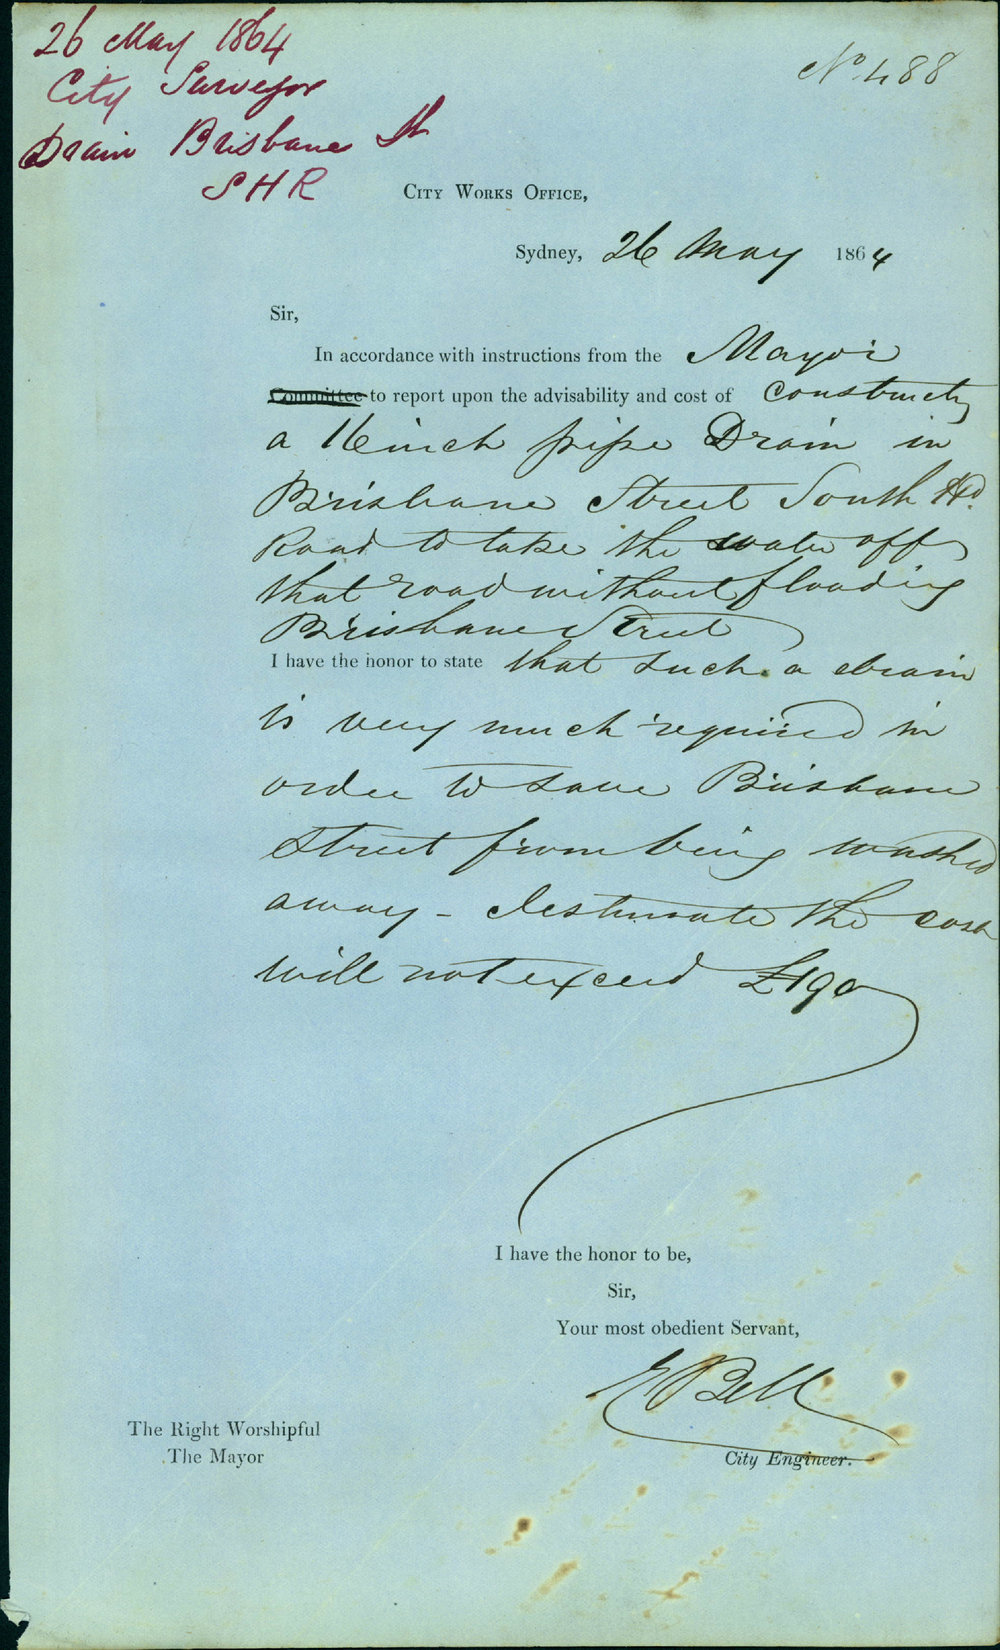 26 May 1864
City Surveyor
Drain Brisbane St
SHR
No 488
City Works Office,
Sydney, 26 May 1864
Sir,
In accordance with instructions from the Mayor
Committee to report upon the advisability and cost of constructg
a 16 inch pipe Drain in
Brisbane Street South Hd.
Road to take the water off
that road without flooding
Brisbane Street
I have the honor to state that such a drain
is very much required in
order to save Brisbane
Street from being washed
away - I estimate the cost
will not exceed £190
I have the honor to be,
Sir,
Your most obedient Servant,
E Bell
City Engineer.
The Right Worshipful
The Mayor